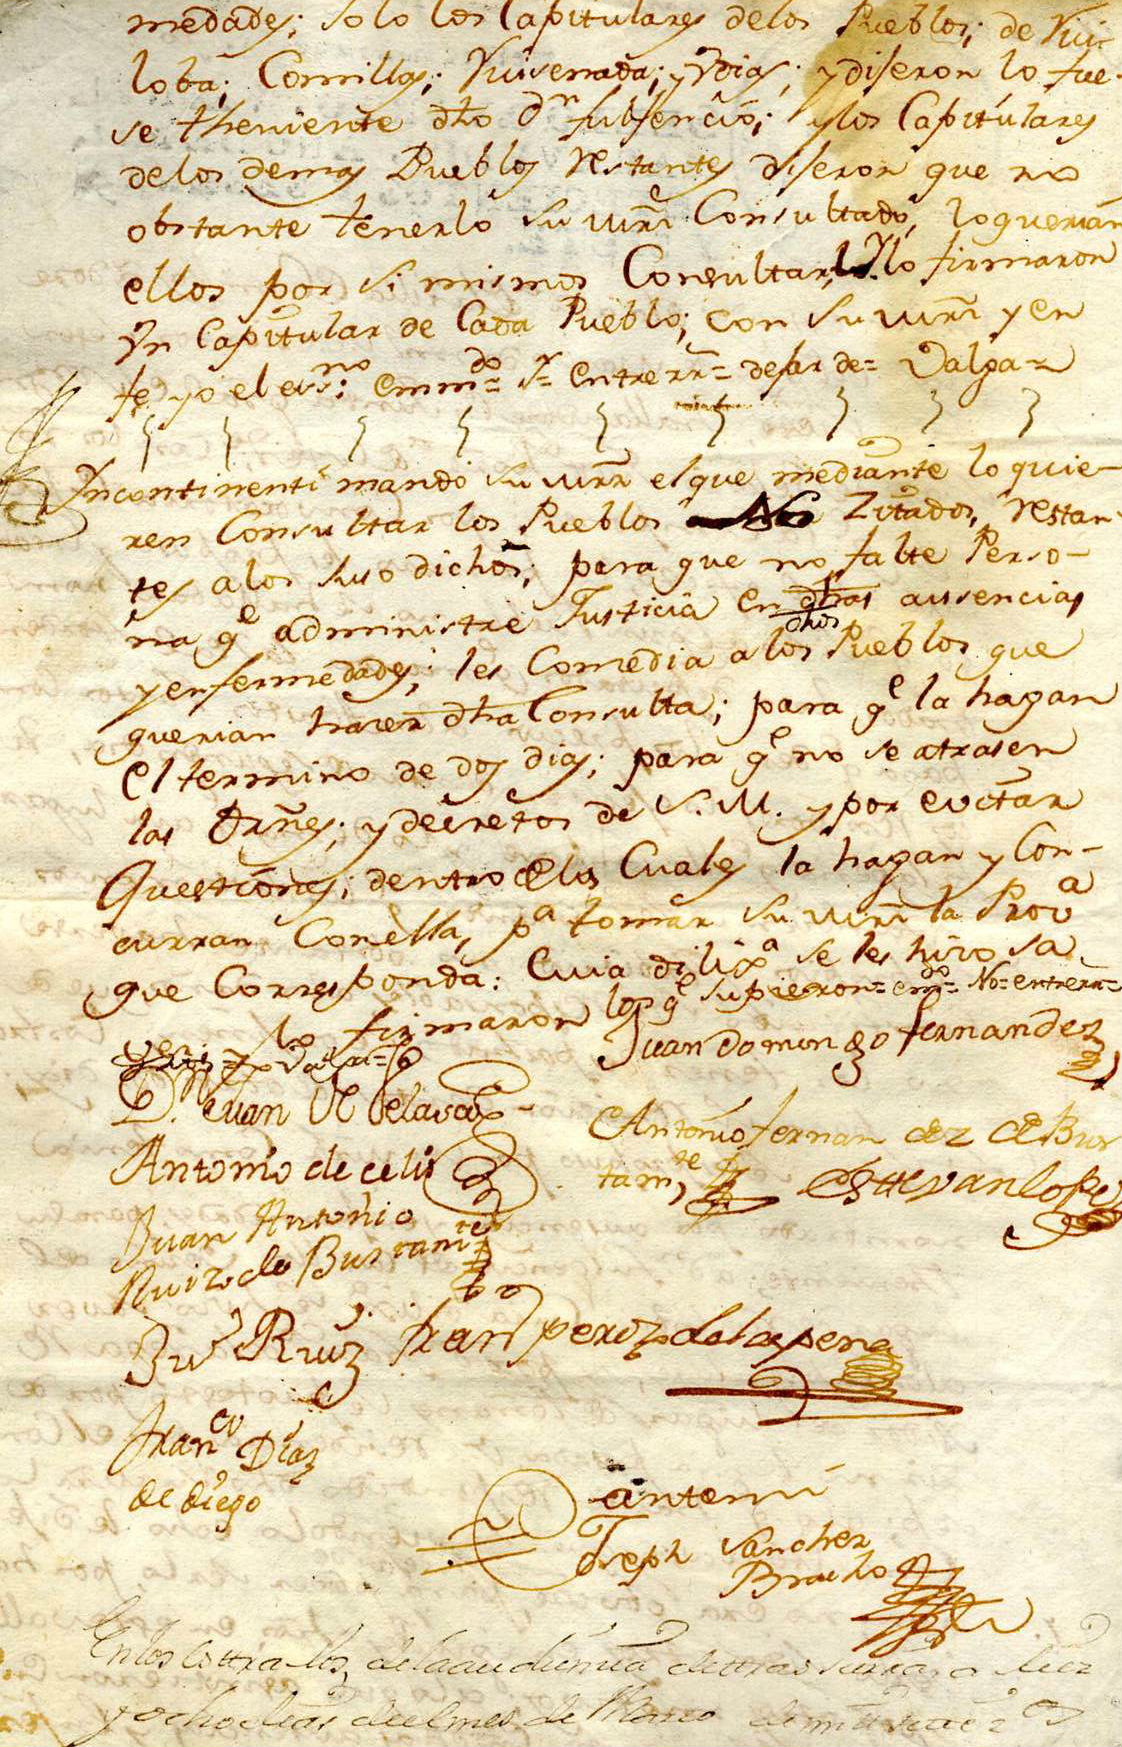 medades; solo los Capitulares delos Pueblos; de Rui-
loba; Comillas; Ruisenada; y Vdias; y diseron lo fue-
se theniente dho Dn fulsencio; y los Capitulares
delos demas Pueblos restantes diseron que no
obstante tenerlo su mrd Consultado, lo querian
ellos por si mismos Consultar, y lo firmaron
Vn Capitular de Cada Pueblo; con su mrd y en
fe yo el essno: emmdo= y= entrerr= desar de= Valga=
Incontinenti mando su mrd el que mediante lo quie-
ren Consultar los Pueblos Zitados, restan-
tes a los suso dichos; para que no falte Perso-
na qe administre Justicia en dhas ausencias
dhos
y enfermedades; les Comedia a los Pueblos que
querian hacer dha Consulta; para qe la hagan
el termino de dos dias; para qe no se atrasen
las Orñes; y decretos de S. M. y por evitar
Questiones; dentro delos Cuales la hagan y Con-
curran Conella, pa tomar su mrd la Prova
que Corresponda: Cuia diliga se les hizo sa-
los qe supieron= emdo= No= entrerr=
lo firmaron
Juan domingo fernandez
Dn Juan Velasco
Antonio fernandez de Bus
tamte
Antonio de celis
Esttevan lopez
Juan Antonio
Ruiz de Bustamte
Jun Ruiz
fran perez de la pena
Franco Diaz
de diego
antemi
Joseph Sanchez
Bracho
En los esttralos de la audiencia
y ocho dias del mes de Marzo de mil sette